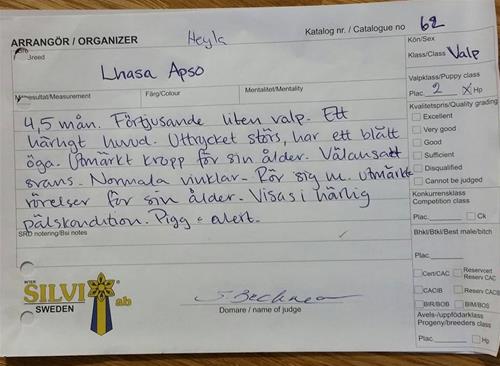 ARRANGÖR / ORGANIZER Heyla Katalog nr. / Catalogue no 62
Breed
Lhasa Apso
Kön/Sex
Klass/Class Valp
Mätresultat/Measurement Färg/Colour Mentalitet/Mentality
Valpklass/Puppy class
Plac. 2 X Hp
4,5 mån. Förtjusande liten valp. Ett
härligt huvud. Uttrycket störs, har ett blått
öga. Utmärkt kropp för sin ålder. Välansatt
svans. Normala vinklar. Rör sig m. utmärkta
rörelser för sin ålder. Visas i härlig
pälskondition. Pigg o alert.
Kvalitetspris/Quality grading
Excellent
Very good
Good
Sufficient
Disqualified
Cannot be judged
Konkurrensklass
Competition class
Plac. Ck
SRD notering/Bsi notes
Bhkl/Btkl/Best male/bitch
Plac.
Cert/CAC Reservcert
Reserv CAC
CACIB Reserv CACIB
BIR/BOB BIM/BOS
Avels-/uppfödarklass
Progeny/breeders class
Plac. Hp
INTER
SILVI ab
SWEDEN
Domare / name of judge